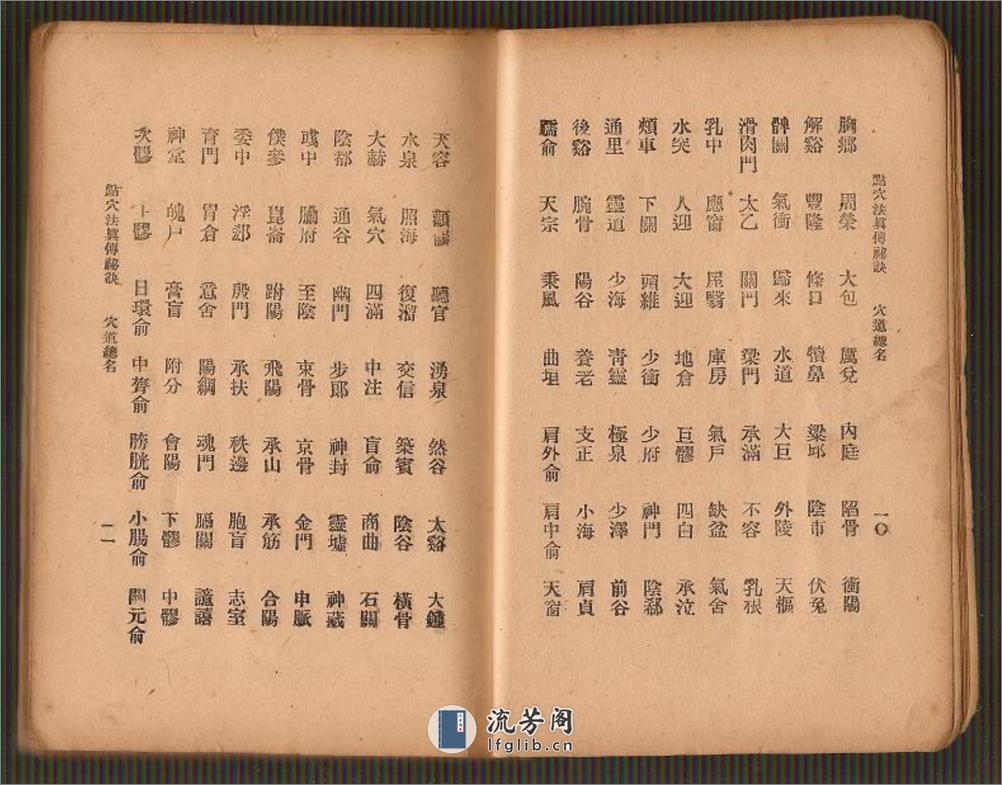 點穴法眞傳祕訣　穴道總名　一〇
胸鄉　周榮　大包　厲兌　內庭　陷骨　衝陽
解谿　豐隆　條口　犢鼻　梁邱　陰市　伏兔
髀關　氣衝　歸來　水道　大巨　外陵　天樞
滑肉門　太乙　關門　梁門　承滿　不容　乳根
乳中　應窗　屋翳　庫房　氣戶　缺盆　氣舍
水突　人迎　大迎　地倉　巨髎　四白　承泣
頰車　下關　頭維　少衝　少府　神門　陰郄
通里　靈道　少海　青靈　極泉　少澤　前谷
後谿　腕骨　陽谷　養老　支正　小海　肩貞
臑俞　天宗　秉風　曲垣　肩外俞　肩中俞　天窗
天容　顴髎　聽官　湧泉　然谷　太谿　大鐘
水泉　照海　復溜　交信　築賓　陰谷　橫骨
大赫　氣穴　四滿　中注　肓俞　商曲　石關
陰都　通谷　幽門　步郎　神封　靈墟　神藏
彧中　腧府　至陰　束骨　京骨　金門　申脈
僕參　崑崙　跗陽　飛陽　承山　承筋　合陽
委中　浮郄　殷門　承扶　秩邊　胞肓　志室
肓門　胃倉　意舍　陽綱　魂門　膈關　譩譆
神堂　魄戶　膏肓　附分　會陽　下髎　中髎
次髎　上髎　白環俞　中膂俞　膀胱俞　小腸俞　關元俞
點穴法眞傳祕訣　穴道總名　一一
流芳阁
lfglib.cn